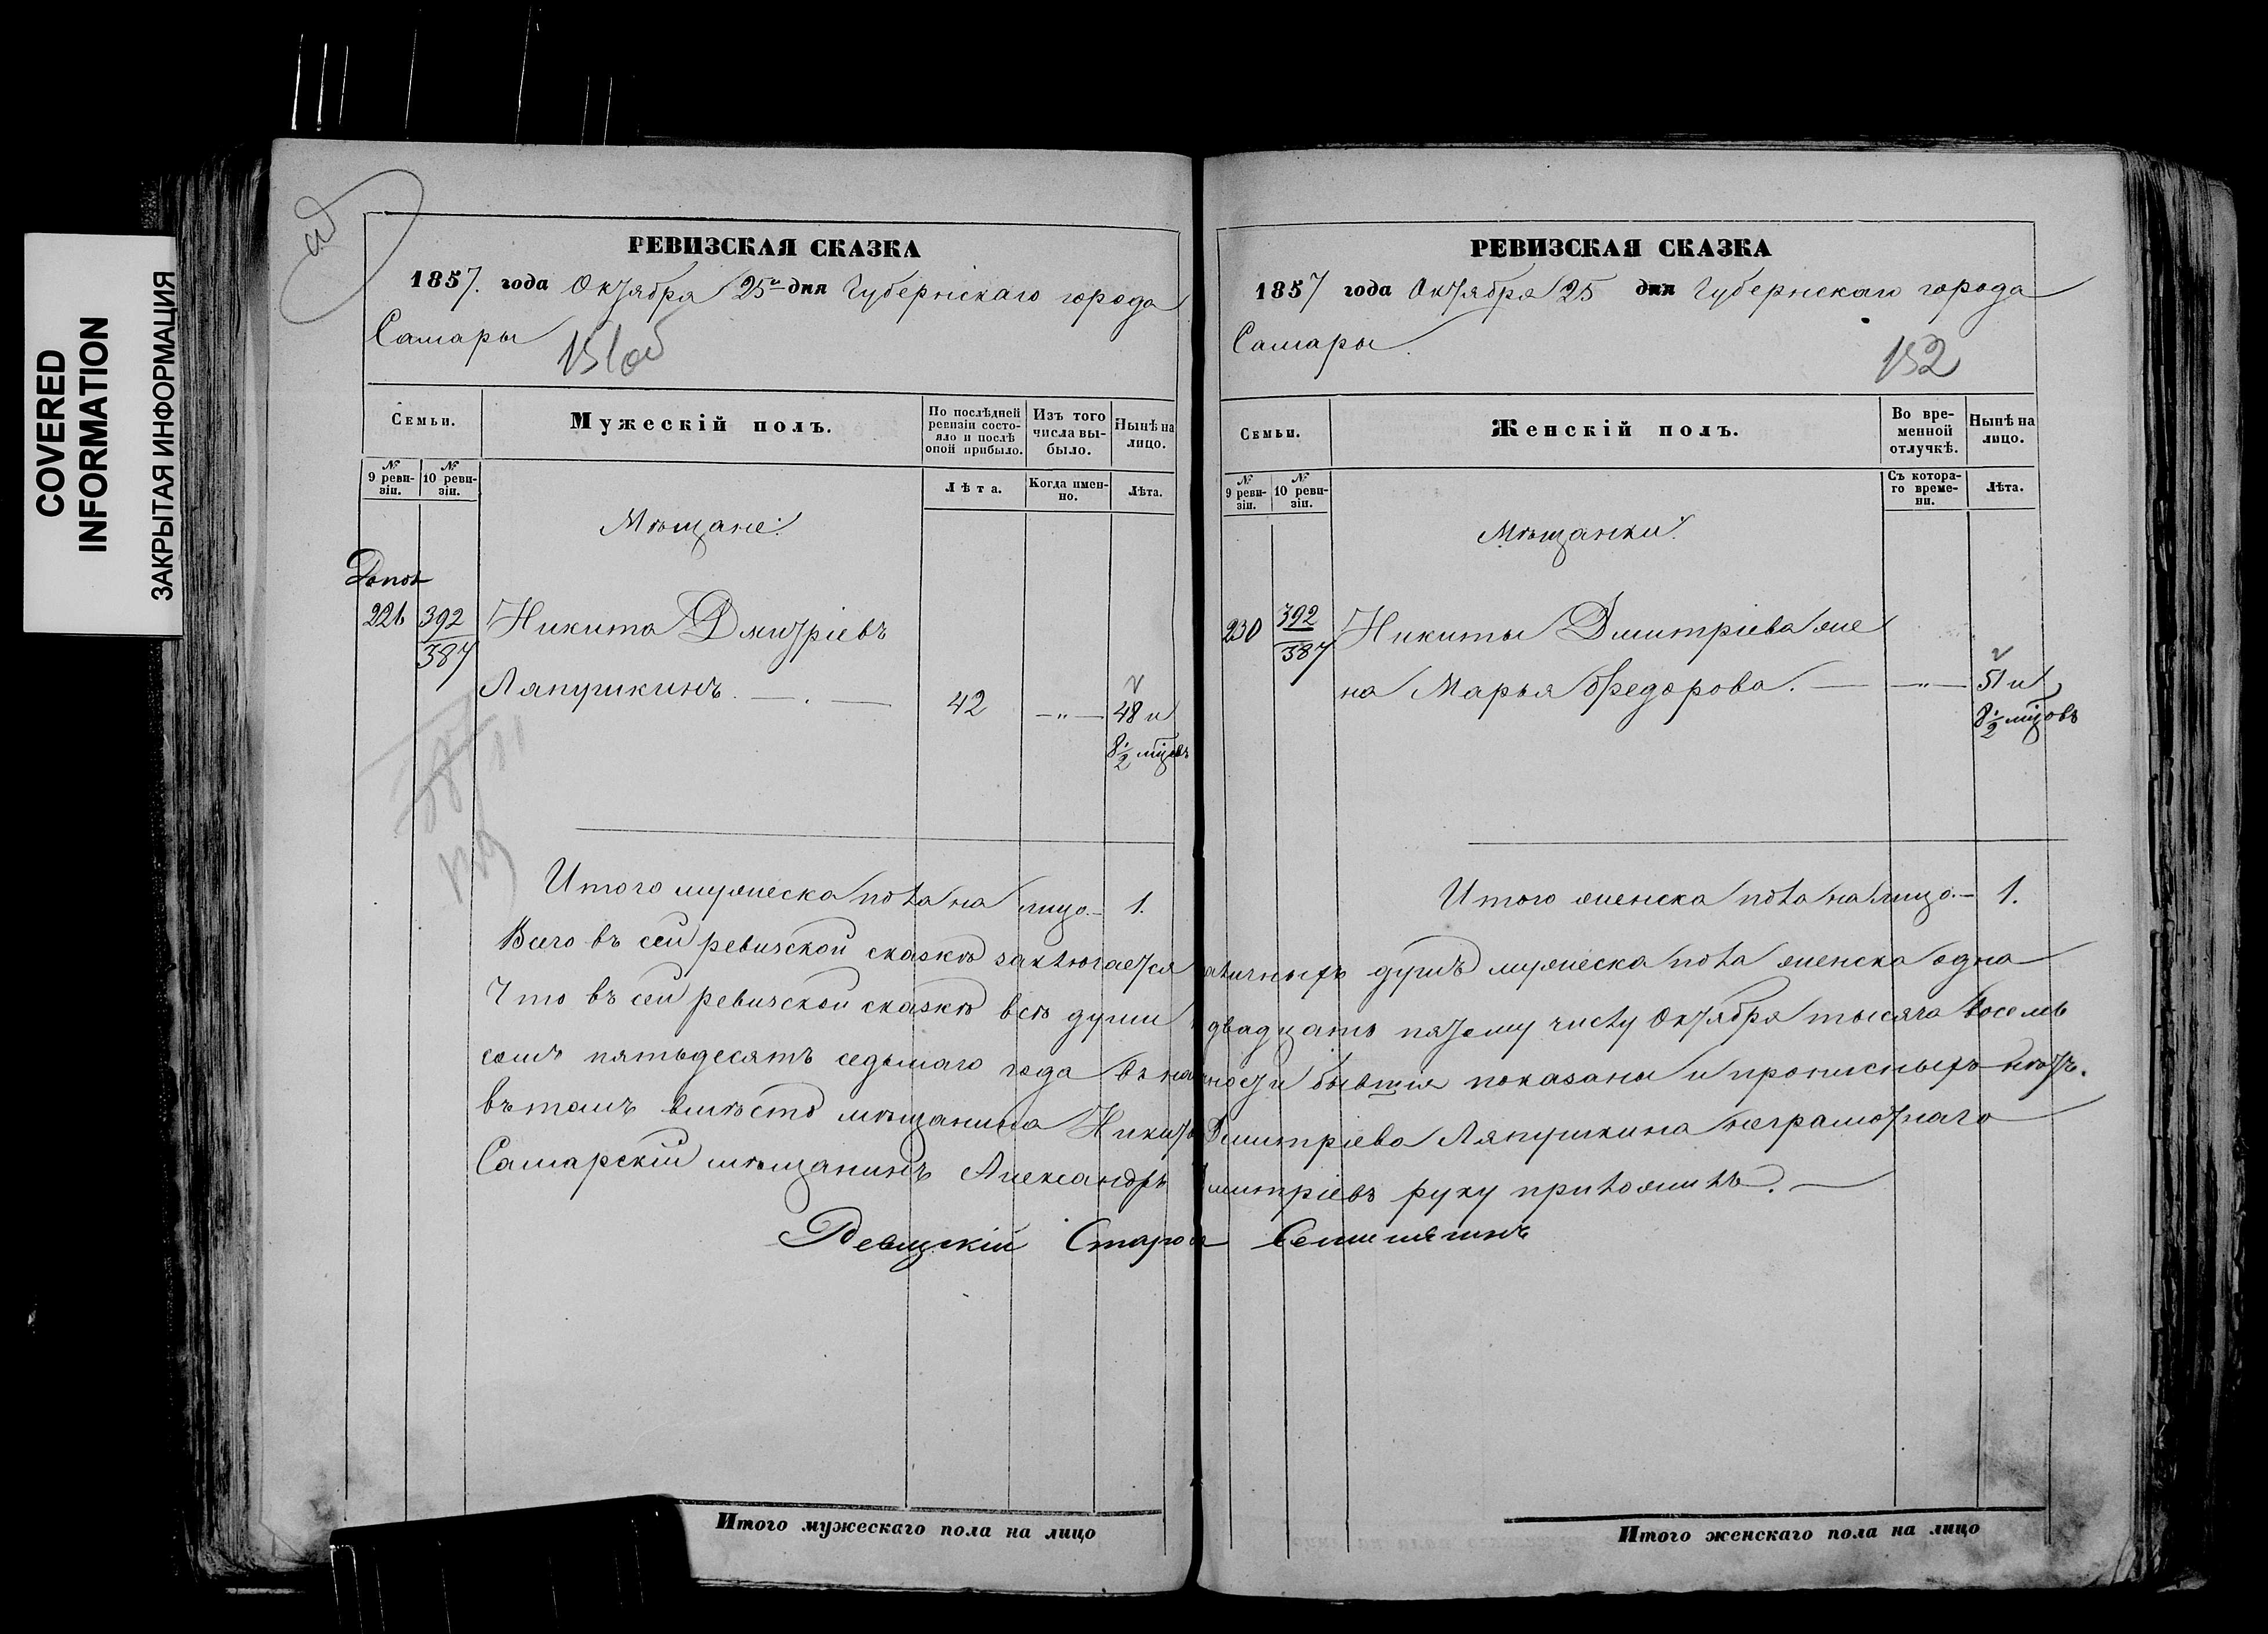 COVERED
INFORMATION
ЗАКРЫТАЯ ИНФОРМАЦИЯ
РЕВИЗСКАЯ СКАЗКА
1857. года Октября 25го дня Губернскаго города
Самары
151об
Семьи.
Мужескій полъ.
По послѣдней ревизіи состояло и послѣ оной прибыло.
Изъ того числа выбыло.
Нынѣ на лицо.
№ 9 ревизіи.
№ 10 ревизіи.
Лѣта.
Когда именно.
Лѣта.
Мѣщане:
Допол
221 392 Никита Дмитріевъ
387
Ляпушкинъ. — . — 42 —"— 48 и
8½ мцовъ
Итого мужеска пола на лицо.— 1.
Итого мужескаго пола на лицо
РЕВИЗСКАЯ СКАЗКА
1857 года Октября 25 дня Губернскаго города
Самары.
152
Семьи.
Женскій полъ.
Во временной отлучкѣ.
Нынѣ на лицо.
№ 9 ревизіи.
№ 10 ревизіи.
Съ котораго времени.
Лѣта.
Мѣщанки:
230 392 Никиты Дмитріева же
387
на Марья Федорова. — —"— 51 и
8½ мцовъ
Итого женска пола на лицо.— 1.
Всего въ сей ревизской сказкѣ заключается личныхъ душъ мужеска пола женска одна
Что въ сей ревизской сказкѣ всѣ души двадцать пятому числу Октября тысяча восемь
сотъ пятьдесятъ седьмаго года въ наличности бывшія показаны и прописныхъ нѣтъ.
въ томъ вмѣсто мѣщанина Никиты Дмитріева Ляпушкина неграмотнаго
Самарскій мѣщанинъ Александръ Дмитріевъ руку приложилъ. —
Староста
Итого женскаго пола на лицо